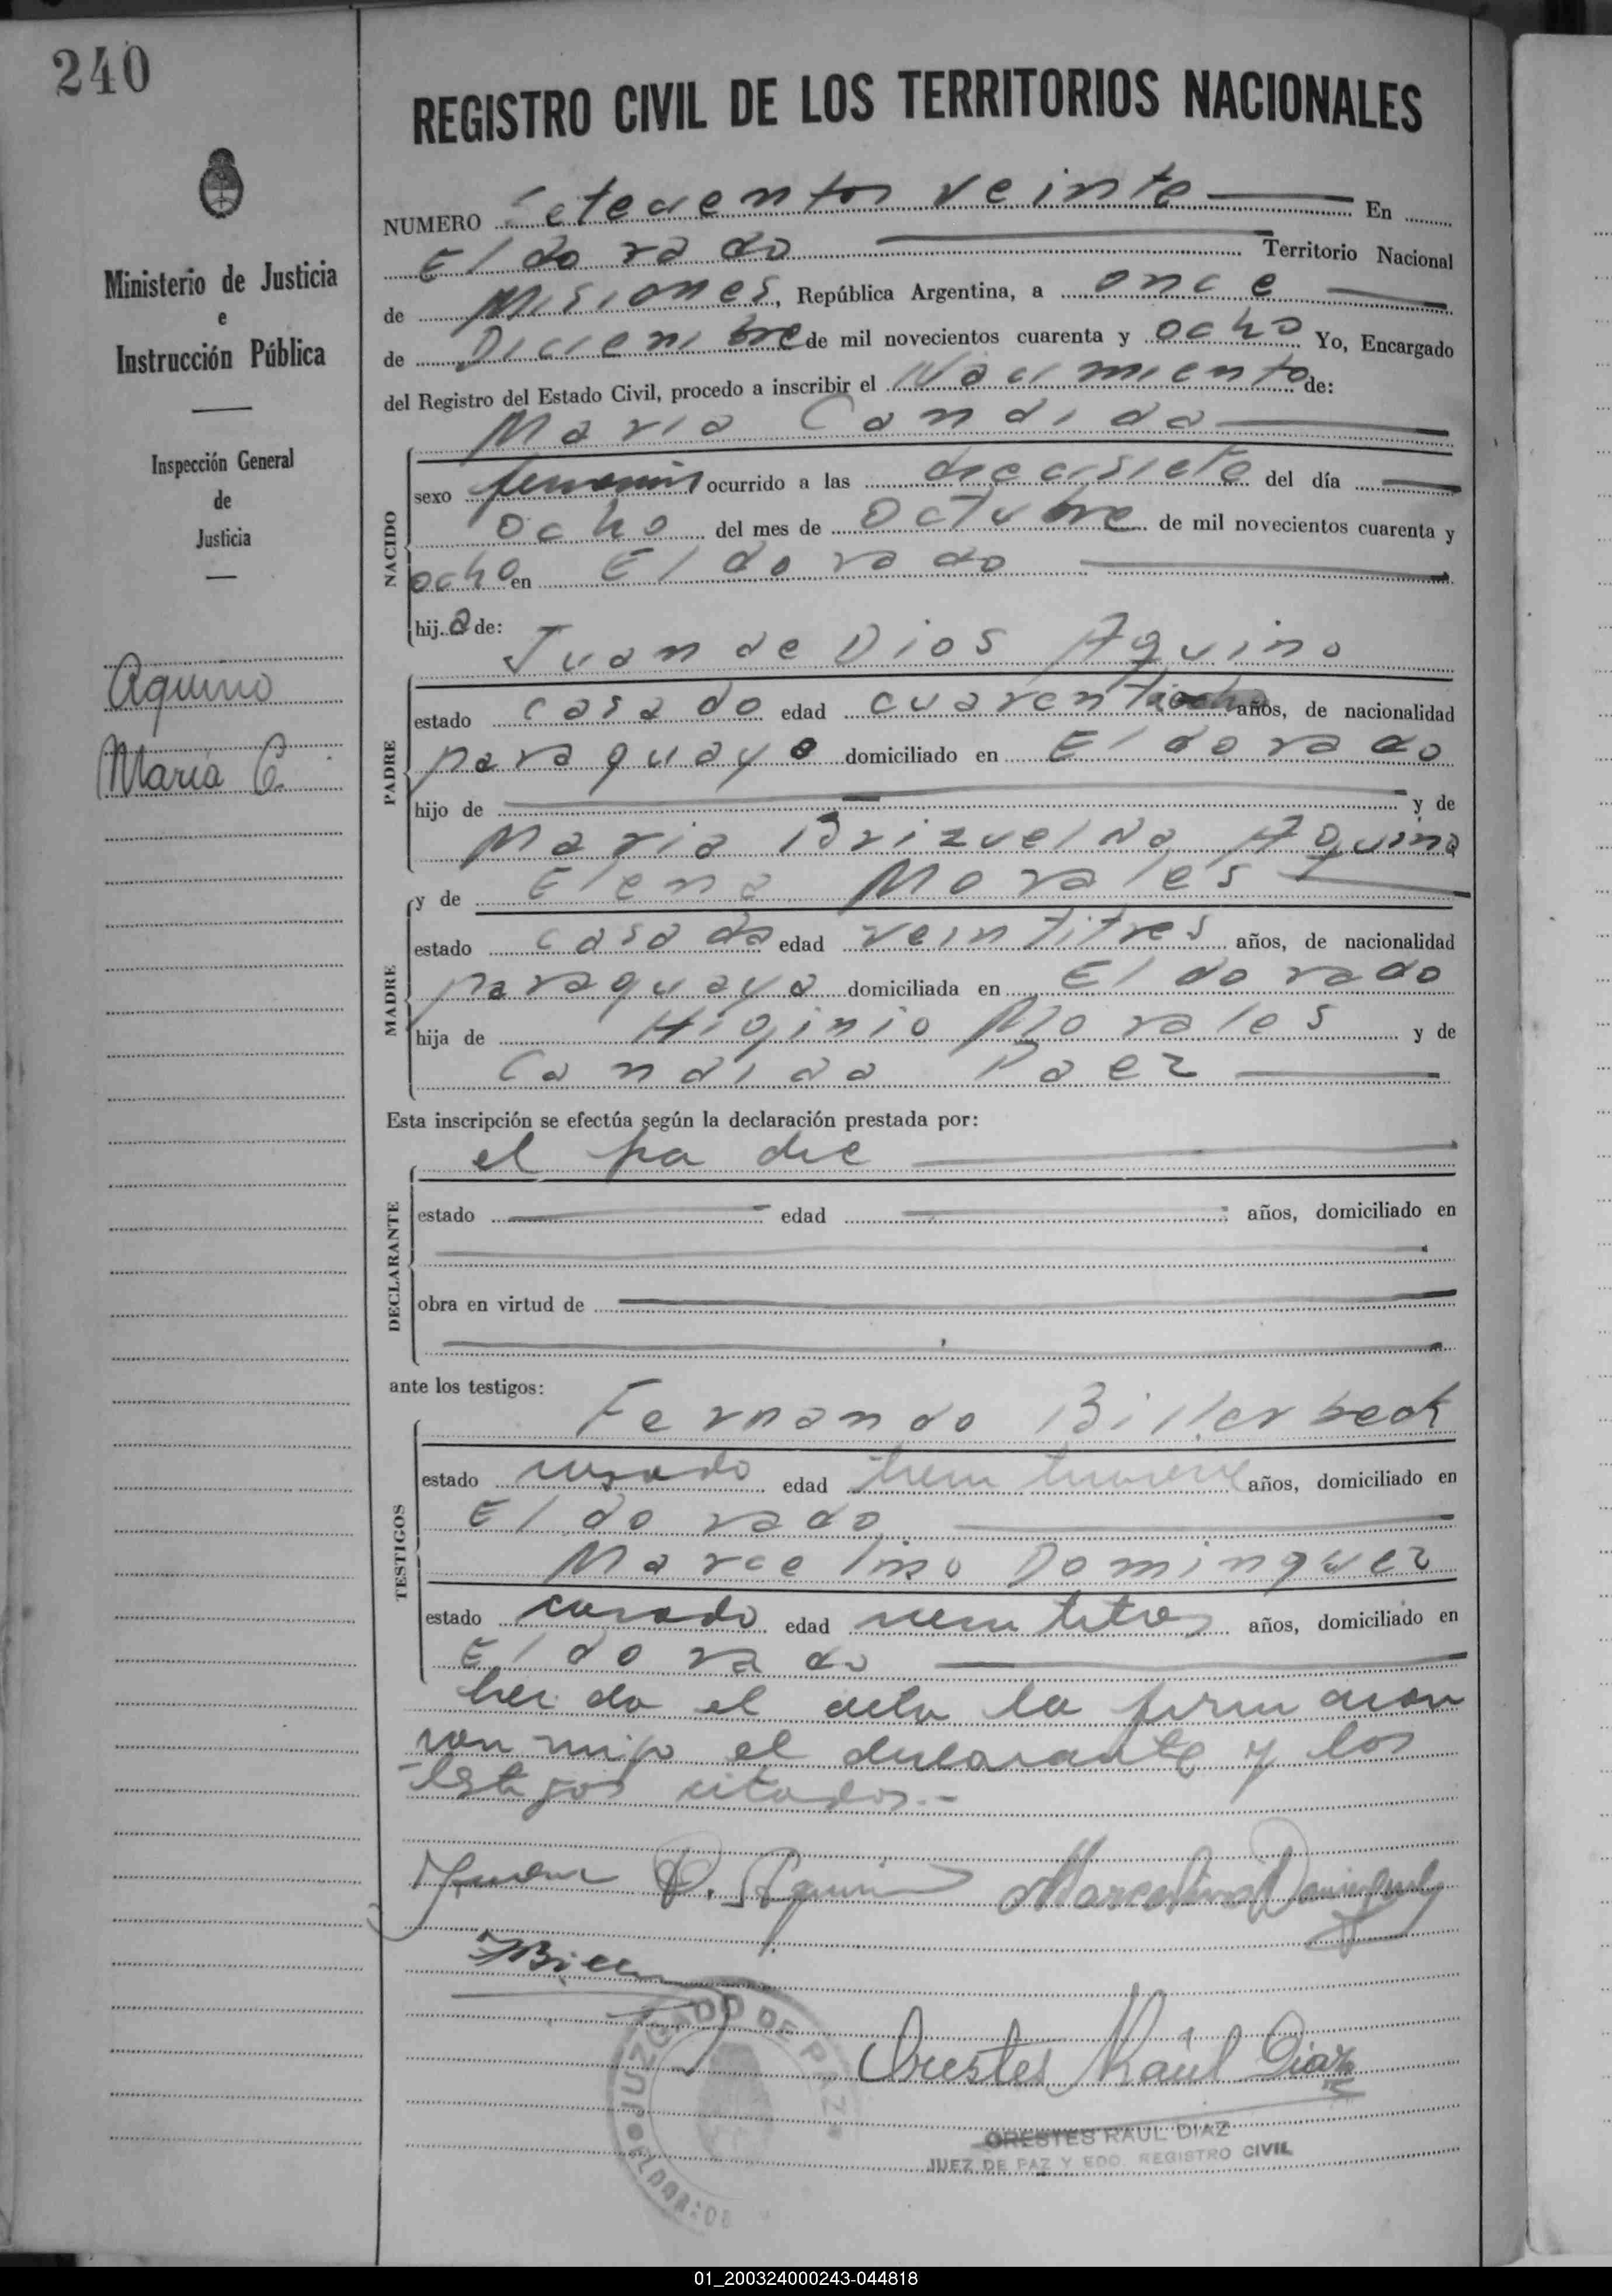 240
REGISTRO CIVIL DE LOS TERRITORIOS NACIONALES
NUMERO Setecientos veinte En
Eldorado Territorio Nacional
de Misiones, República Argentina, a once
de Diciembre de mil novecientos cuarenta y ocho Yo, Encargado
del Registro del Estado Civil, procedo a inscribir el Nacimiento de:
Maria Candida
Ministerio de Justicia
e
Instrucción Pública
Inspección General
de
Justicia
Aquino
María C.
NACIDO
sexo femenino ocurrido a las diecisiete del día
ocho del mes de Octubre de mil novecientos cuarenta y
ocho en Eldorado
hija de:
Juan de Dios Aquino
PADRE
estado casado edad cuarentiocho años, de nacionalidad
paraguayo domiciliado en Eldorado
hijo de y de
Maria Brizuela Aquino
MADRE
y de Elena Morales
estado casada edad veintitres años, de nacionalidad
paraguaya domiciliada en Eldorado
hija de Higinio Morales y de
Candida Paez
Esta inscripción se efectúa según la declaración prestada por:
el padre
DECLARANTE
estado edad años, domiciliado en
obra en virtud de
ante los testigos:
Fernando Billerbeck
TESTIGOS
estado casado edad años, domiciliado en
Eldorado
Marcelino Dominguez
estado casado edad veintitres años, domiciliado en
Eldorado
Leida el acta la firmaron
conmigo el declarante y los
testigos citados.-
Juan D. Aquino Marcelino Dominguez
FBiller
JUZGADO DE PAZ
ELDORADO
Orestes Raúl Diaz
ORESTES RAUL DIAZ
JUEZ DE PAZ Y EDO. REGISTRO CIVIL
01_200324000243-044818